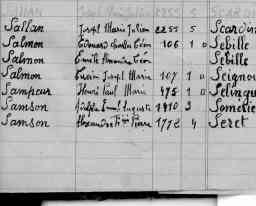 Sallan Joseph Marie Julien 2255 5 Scardin
Salmon Edouard Charles Léon 106 1 Sébille
Salmon Camille Alexandre Léon Sébille
Salmon Lucien Joseph Marie 107 1 Seignou
Sampeur Henri Paul Marie 495 1 Sélingue
Samson Auguste 1910 3
Samson Alexandre Pierre 1772 4 Seret